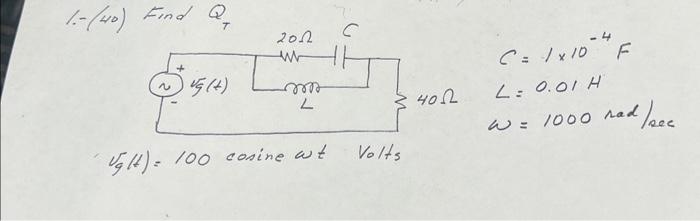 1.-(40) Find Q_T
20Ω C
+ ~ - vg(t)
L
40Ω
C = 1x10^-4 F
L = 0.01 H
ω = 1000 rad/sec
vg(t) = 100 cosine ωt Volts